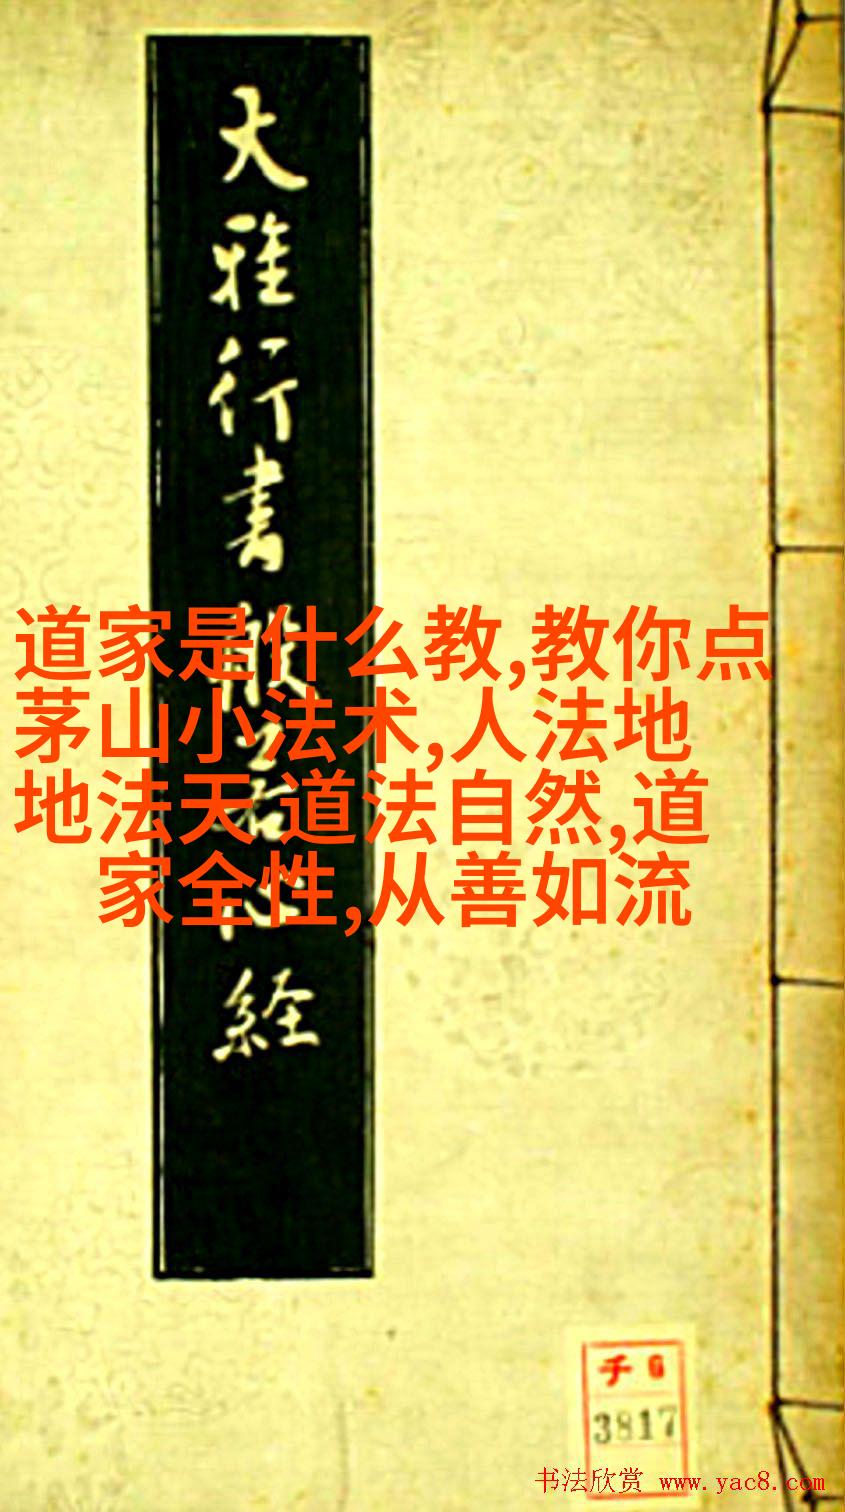 大雅行書般若心経
道家是什么教,教你点
茅山小法术,人法地
地法天 道法自然,道
家全性,从善如流
チ6
3817
书法欣赏 www.yac8.com